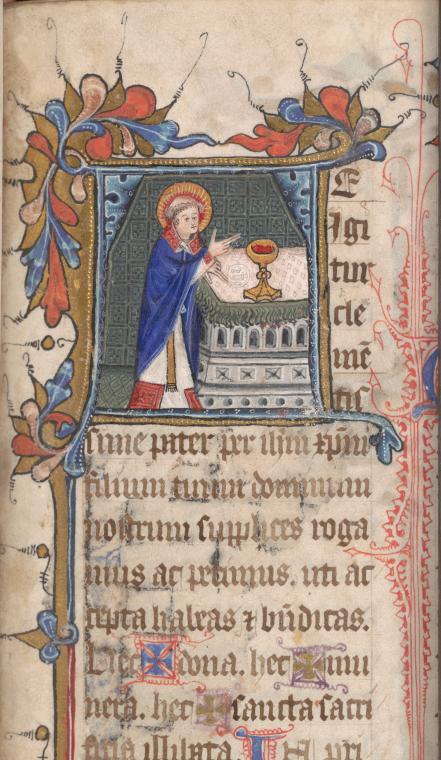 TE
igi
tur
cle
mē
tis
sime pater per ihm xpm
filium tuum dominum
nostrum supplices roga
mus ac petimus. uti ac
cepta habeas ⁊ bn̄dicas.
hec ✠ dona. hec ✠ mu
nera. hec ✠ sancta sacri
ficia illibata. IN pri